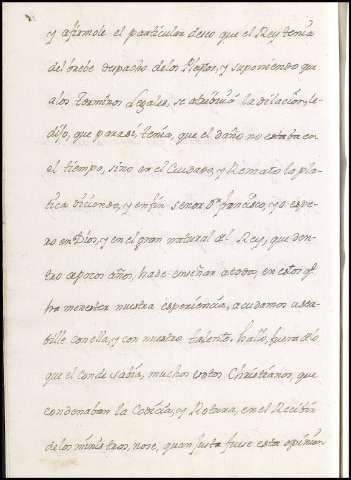 y afirmole el particular deseo que el Rey tenia
del brebe despacho delos Pleytos, y suponiendo que
alos terminos Legales, se atribuia la dilacion, le
dijo, que para si, tenia, que el daño no estaba en
el tiempo, sino en el Cuidado, y Remato la pla
tica diciendo, y en fin señor Dn francisco, yo espe
ro en Dios, y en el gran natural del Rey, que den
tro de pocos años, hade enseñar atodos, en estos qe
ha menester nuestra esperiencia, acudamos
con ella, y con nuestro talento, hallo, fuera de lo
que el conde sabia, muchos textos Christianos, que
condenaban la Codicia, y Rotura, en el Recibir
de los ministros, no se, quan justa fuese esta opinion